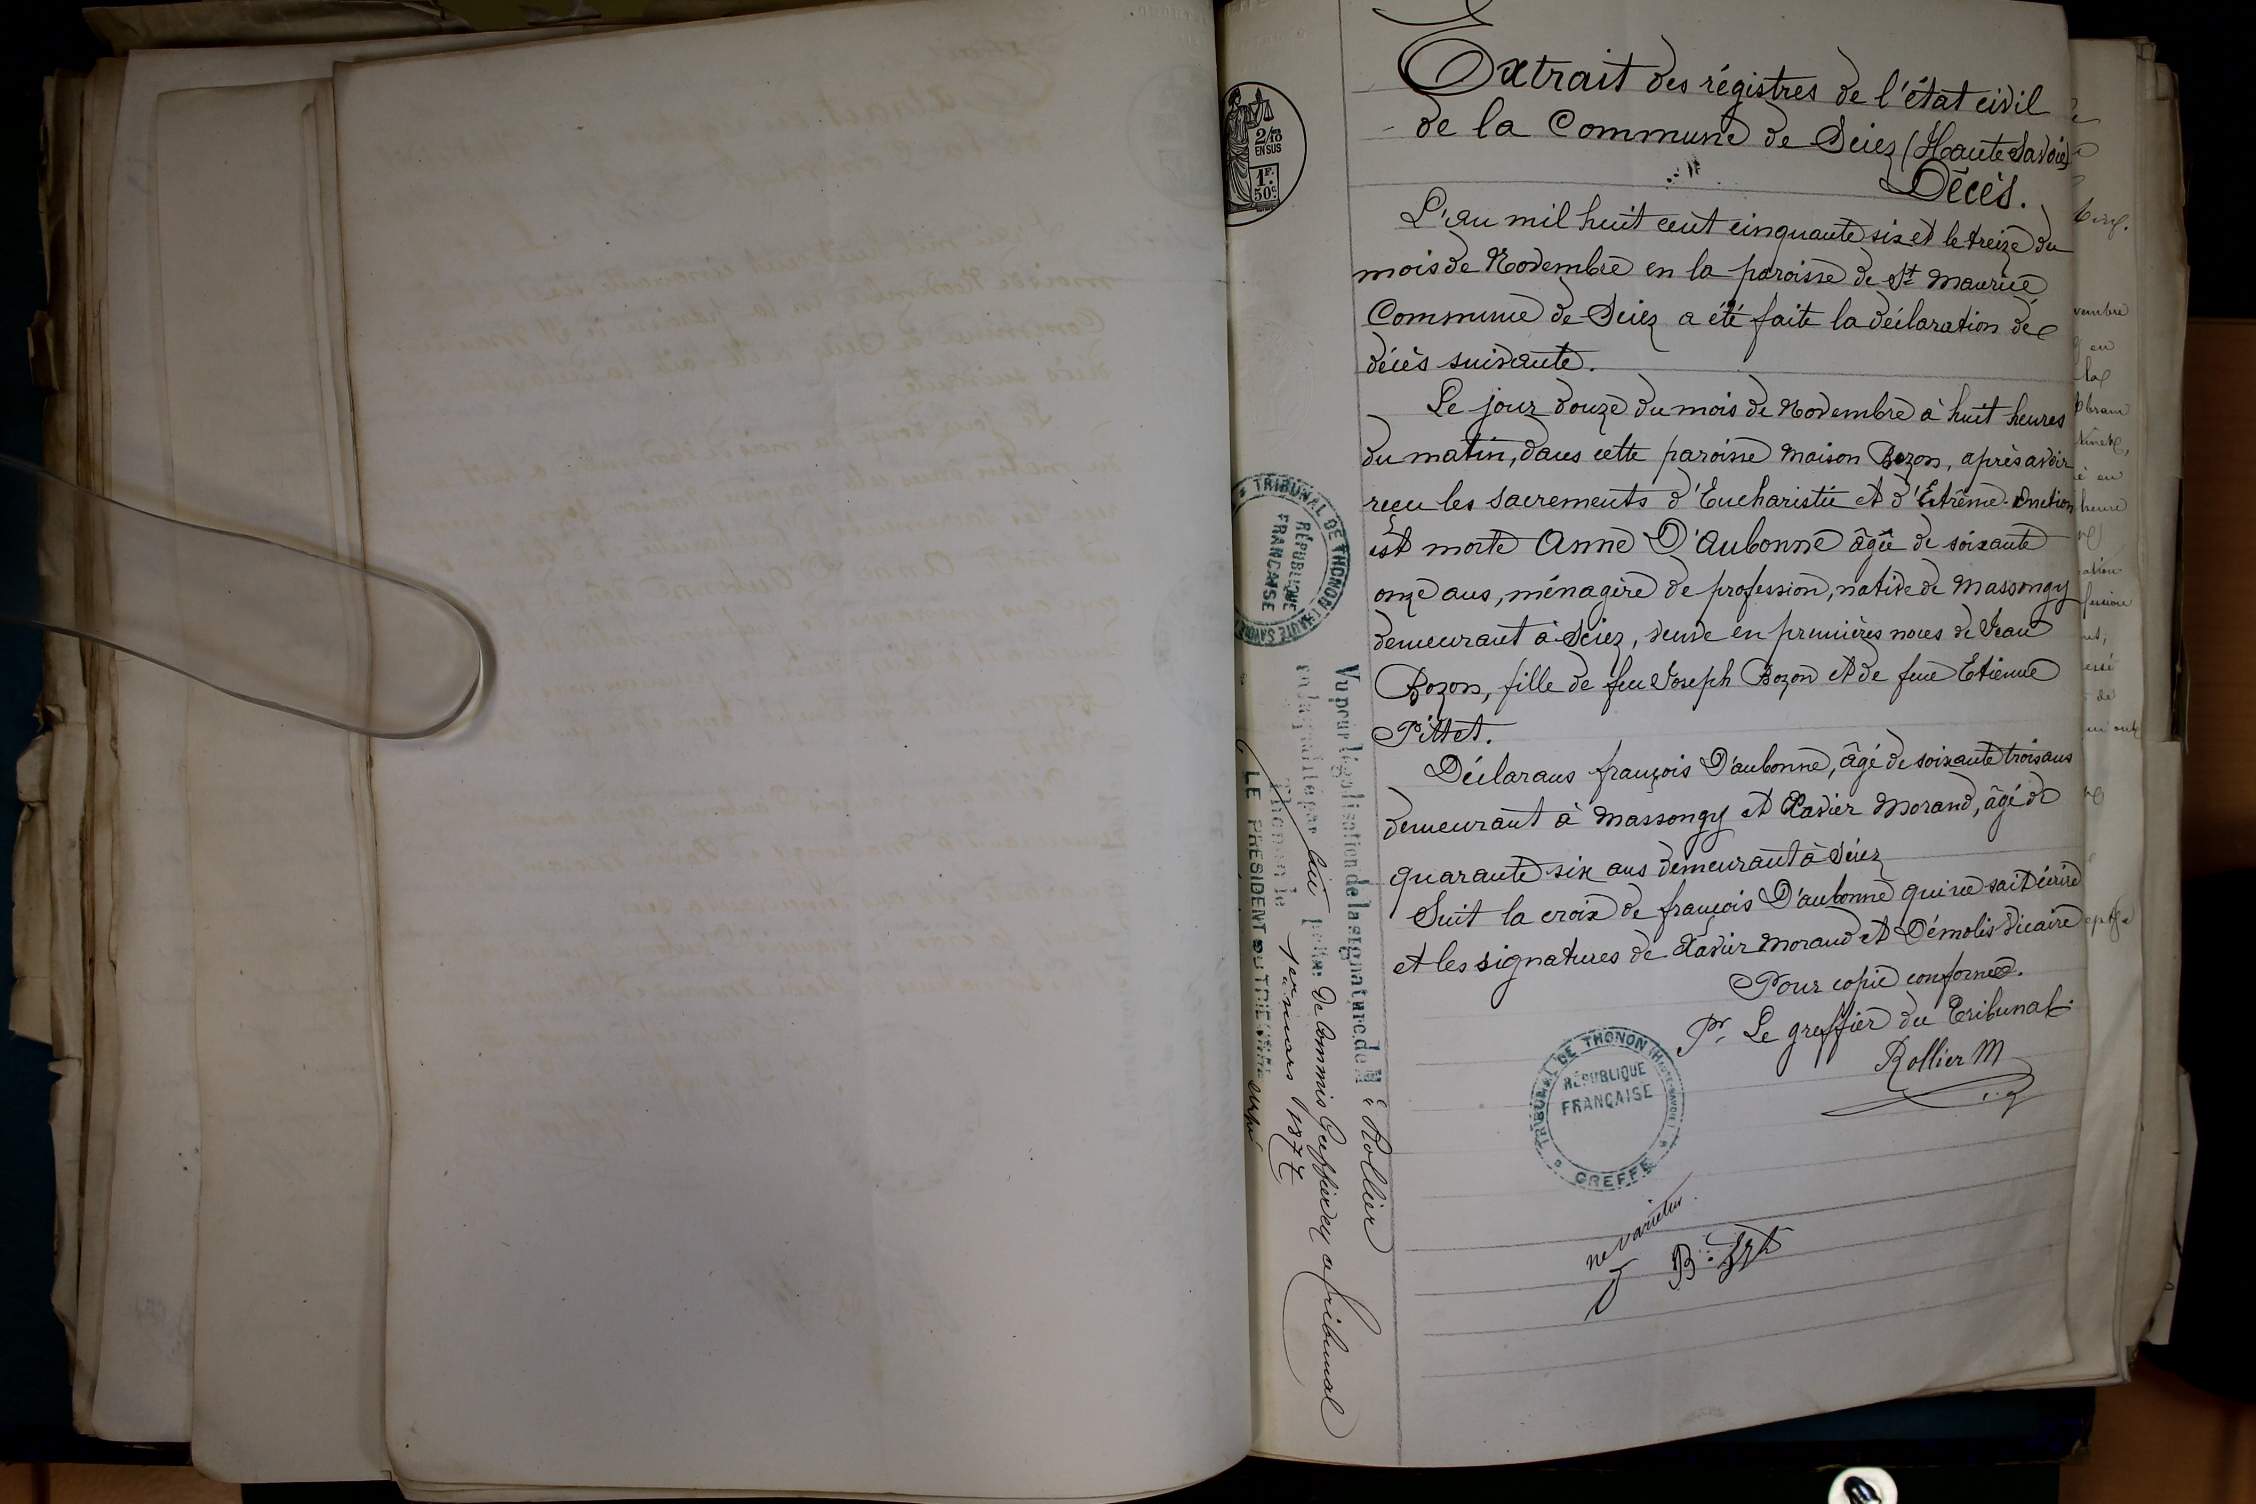 Extrait des régistres de l'état civil
de la Commune de Sciez (Haute Savoie)
Décès.
L'an mil huit cent cinquante six et le treize du
mois de Novembre en la paroisse de St Maurice
Commune de Sciez a été faite la déclaration de
décès suivante.
Le jour douze du mois de Novembre à huit heures
du matin, dans cette paroisse maison Bozon, après avoir
reçu les sacrements d'Eucharistie et d'Extrême-Onction
est morte Anne D'aubonne âgée de soixante
onze ans, ménagère de profession, native de Massongy
demeurant à Sciez, veuve en premières noces de Jean
Bozon, fille de feu Joseph Bozon et de feue Etienne
Pittet.
Déclarans françois D'aubonne, âgé de soixante trois ans
demeurant à Massongy et Xavier Morand, âgé de
quarante six ans demeurant à Sciez
Suit la croix de françois D'aubonne qui ne sait écrire
et les signatures de Xavier Morand et Démolis Vicaire
Pour copie conforme.
Pr. Le greffier du Tribunal.
Rollier M
TRIBUNAL DE THONON (HAUTE-SAVOIE)
RÉPUBLIQUE
FRANÇAISE
GREFFE
ne varietur
2/10
EN SUS
1F.
50c.
TRIBUNAL DE THONON (HAUTE SAVOIE)
RÉPUBLIQUE
FRANÇAISE
Vu pour légalisation de la signature de Me Rollier
en la qualité par lui prise de Commis Greffier de ce Tribunal
Thonon le 1er mars 1877
LE PRÉSIDENT DU TRIBUNAL